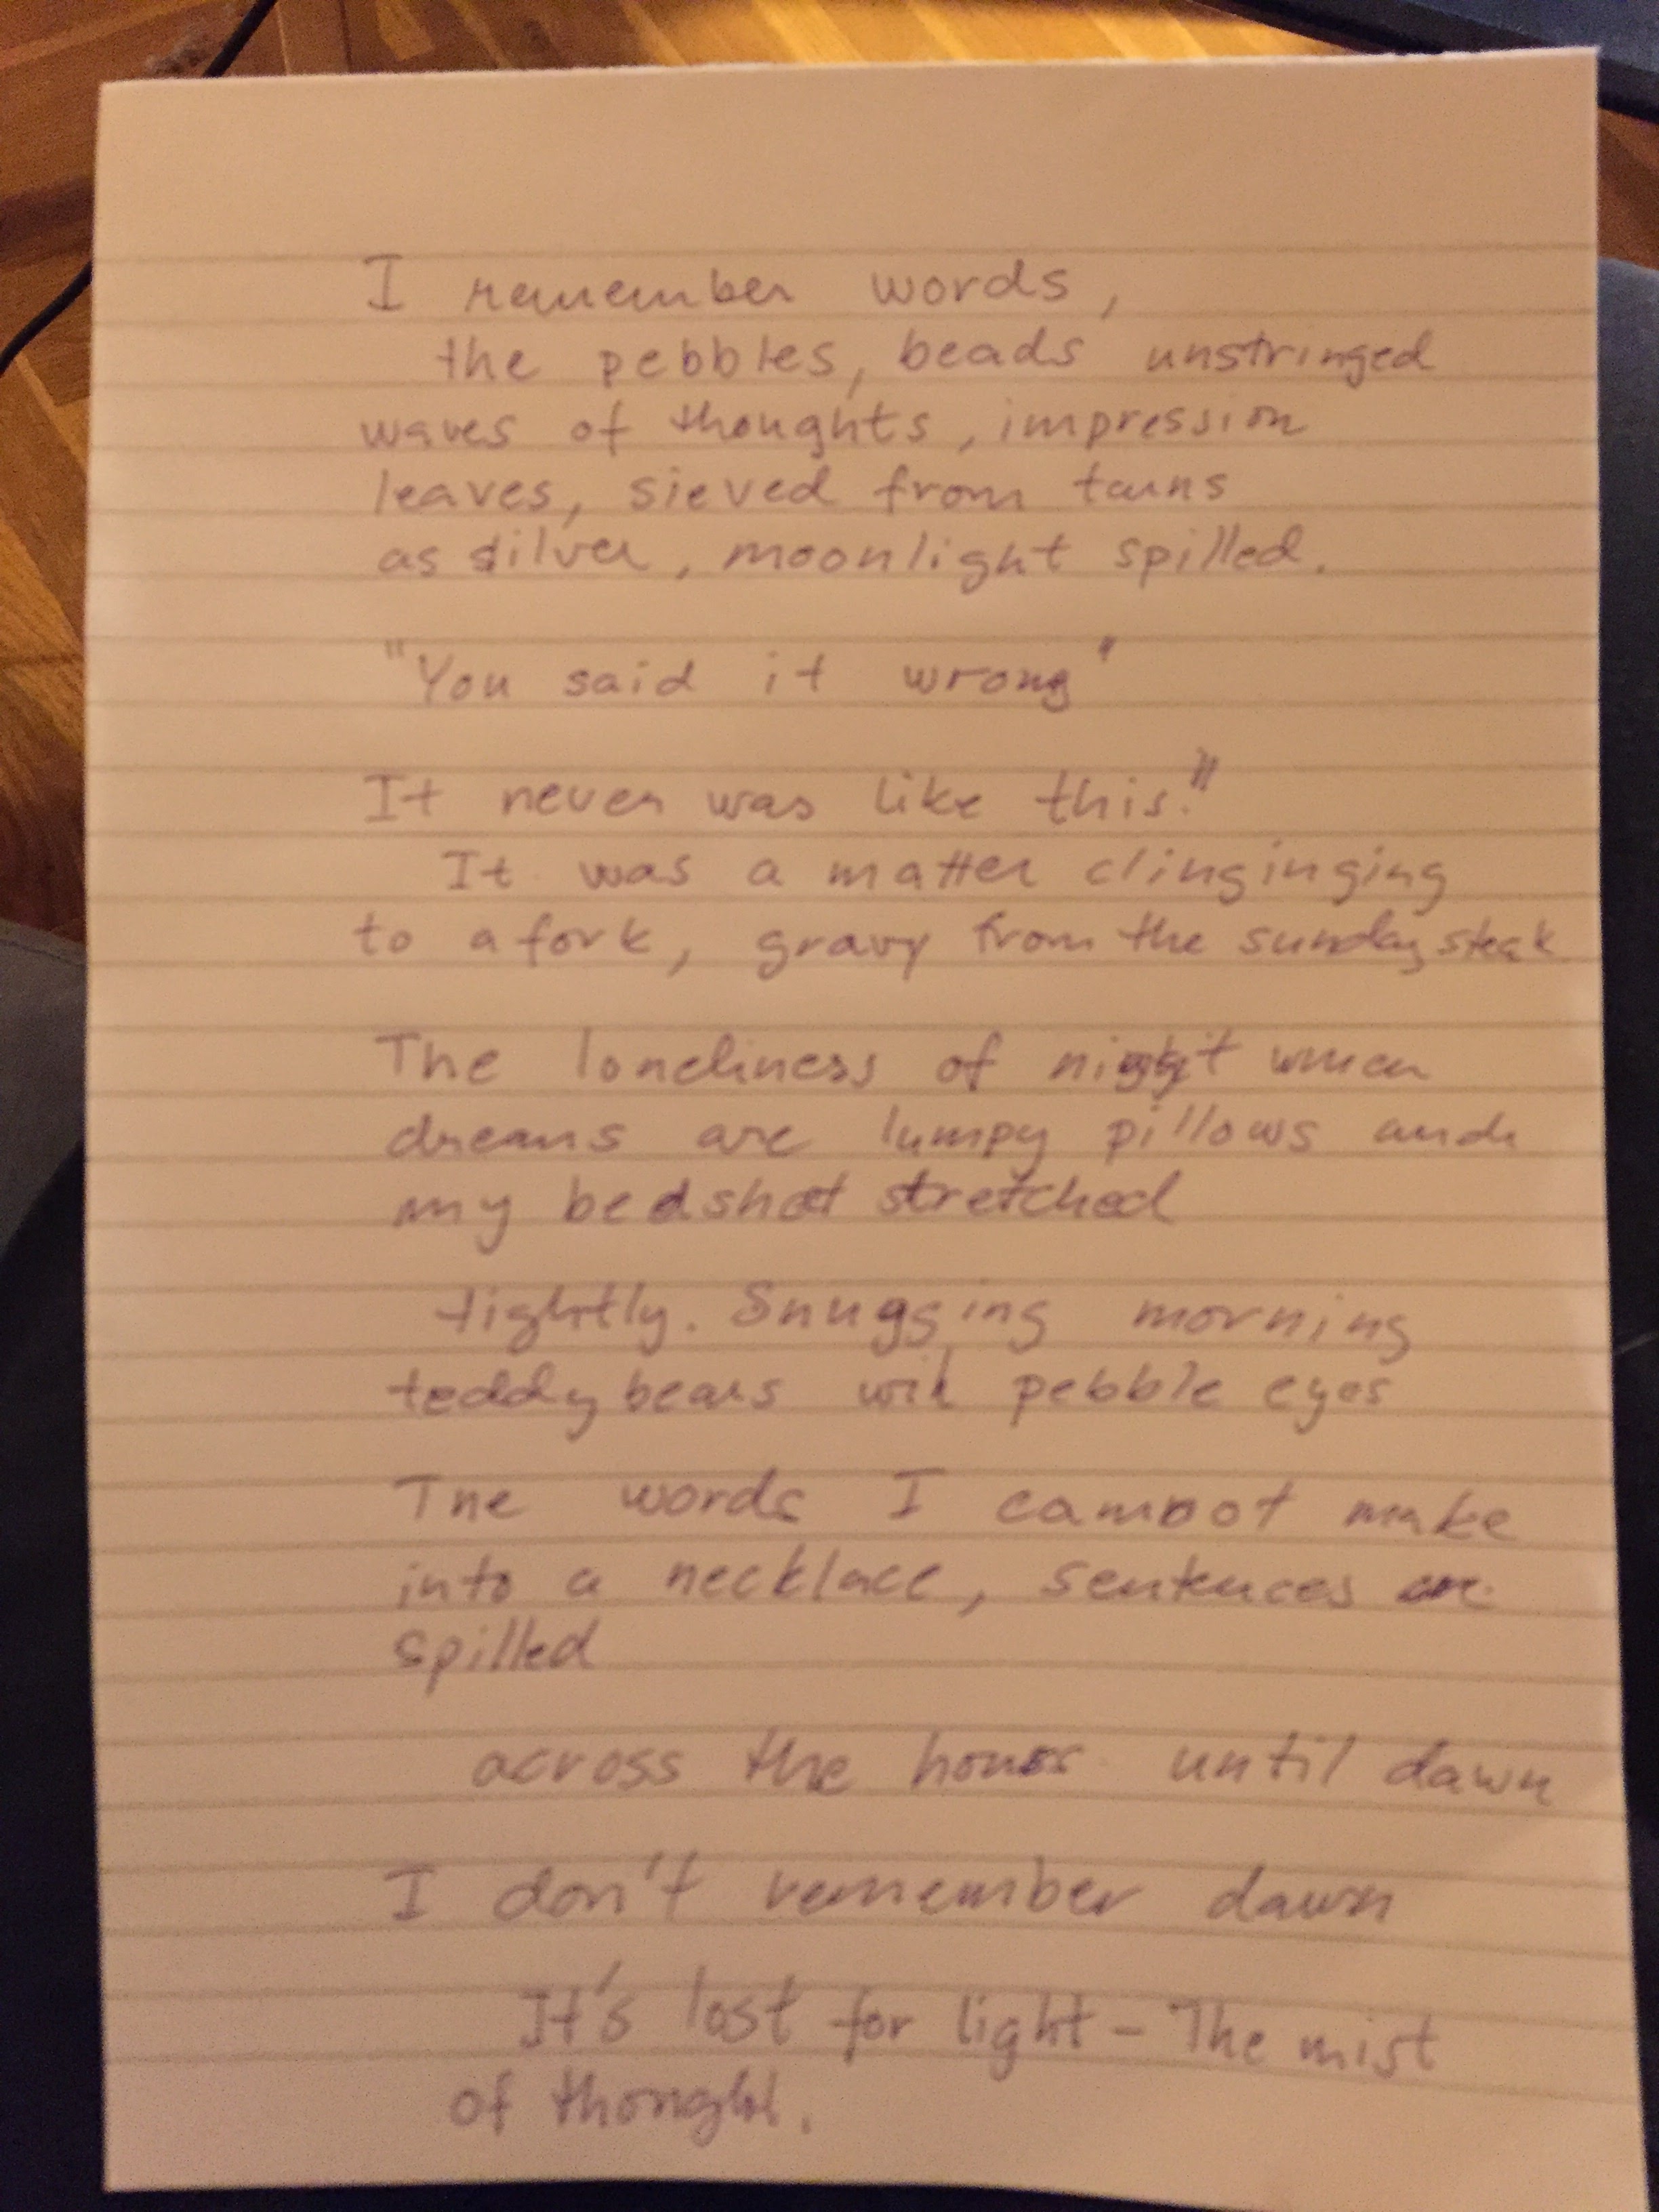 I remember words,
the pebbles, beads unstringed
waves of thoughts, impression
leaves, sieved from tarns
as silver, moonlight spilled.
"You said it wrong"
It never was like this."
It was a matter clinginging
to a fork, gravy from the sunday steak
The loneliness of night when
dreams are lumpy pillows and
my bedsheet stretched
tightly. Snugging morning
teddybears with pebble eyes
The words I cannot make
into a necklace, sentences are
spilled
across the hours until dawn
I don't remember dawn
It's lost for light - The mist
of thought.